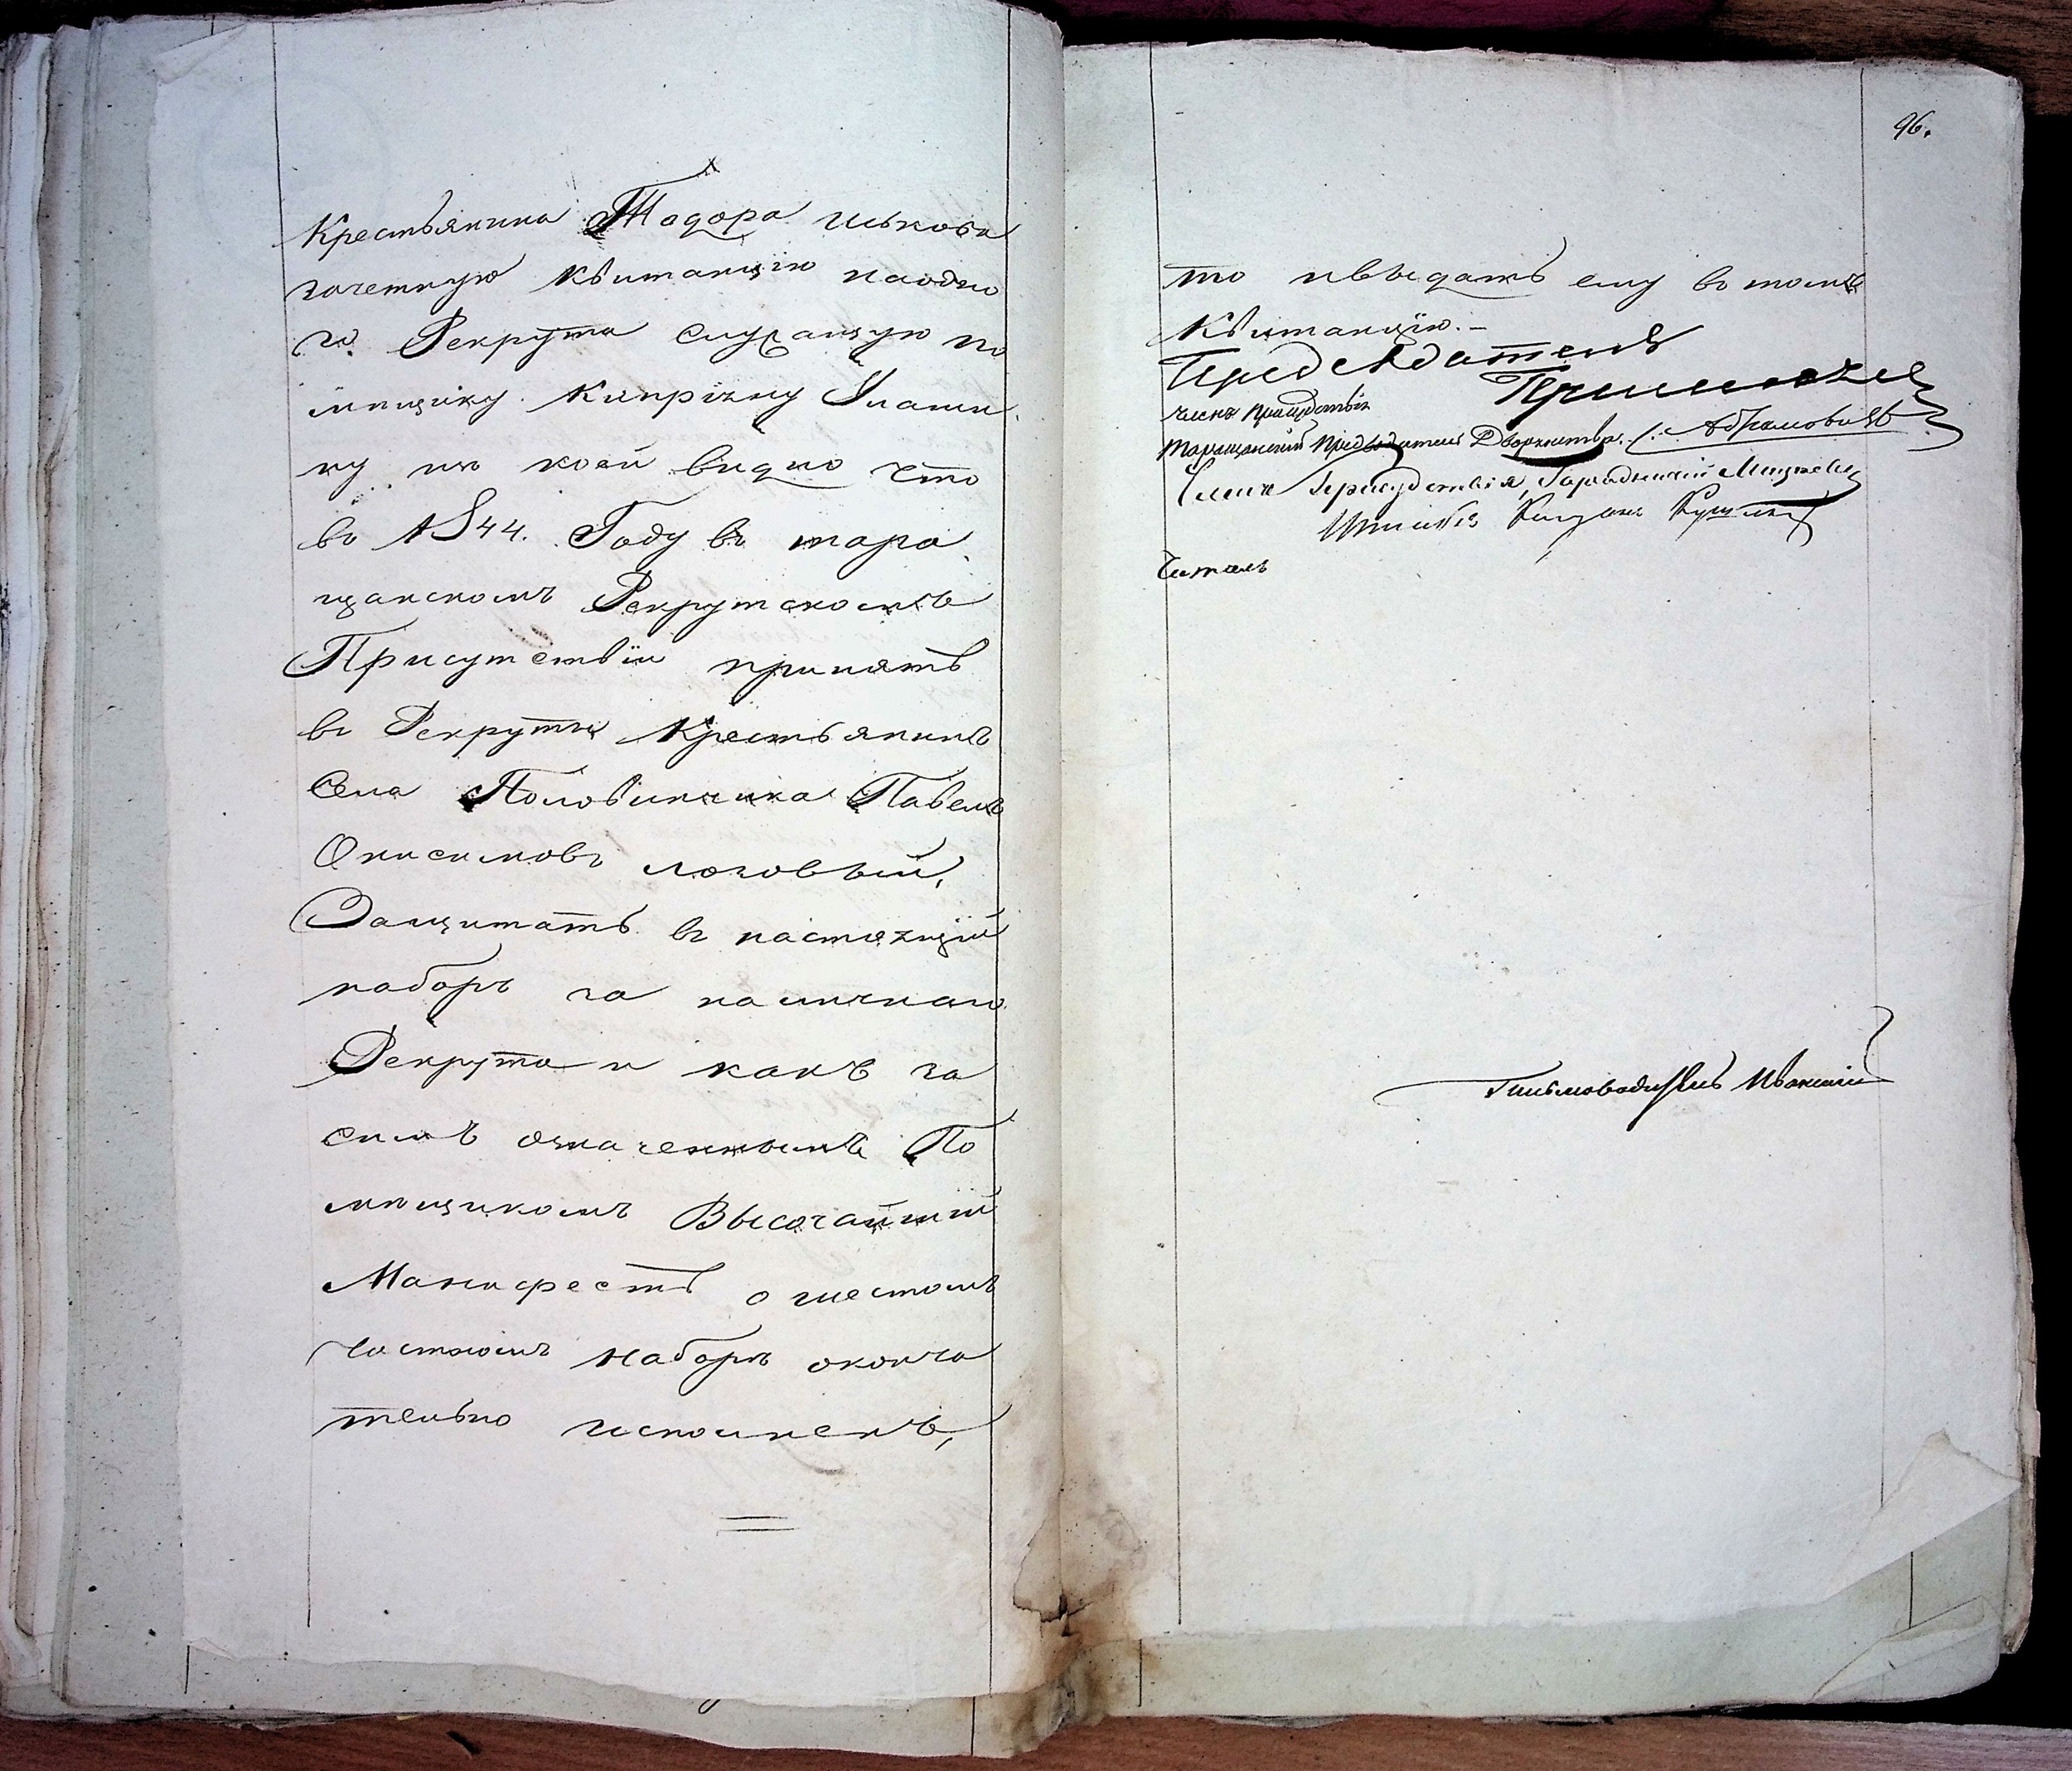 Крестьянина Тодора Иькова
зачетную квитанцію на одно
го Рекрута слудащую по
мѣщику Кипріяну Улаши
ну изъ коей видно что
въ 1844. Году въ тара
щанскомъ Рекрутскомъ
Присутствіи принятъ
въ Рекруты Крестьянинъ
Села Половинчика Павелъ
Онисимовъ лозовый,
Защитать въ настоящій
наборъ за наличнаго
Рекрута и какъ за
симъ означеннымъ По
мѣщикомъ Высочайшій
Манифестъ о шестомъ
частномъ наборѣ оконча
тельно исполненъ,
96.
то выдать ему въ томъ
Квитанцію.–
Председатель
членъ присудствія
таращанскій предводитель Дворянства Абрамовичъ
Членъ Присудствія, Городничій
Штабсъ Капитанъ
Читалъ
Письмоводитель